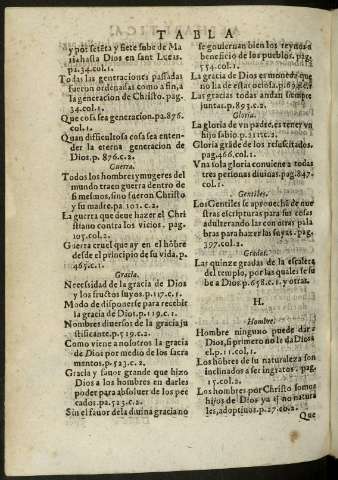 TABLA
y por seteta y siete sube de Ma
ria hasta Dios en sant Lucas.
pa.34.col.1.
Todas las generaciones passadas
fueron ordenadas como a fin, a
la generacion de Christo. pag.
34.col.1.
Que cosa sea generacion. pa.876.
col.1.
Quan difficultosa cosa sea enten-
der la eterna generacion de
Dios. p. 876. c.2.
Guerra.
Todos los hombres y mugeres del
mundo traen guerra dentro de
si mesmos, sino fueron Christo
y su madre. pa. 101. c.2.
La guerra que deue hazer el Chri
stiano contra los vicios. pag.
105.col.2.
Guerra cruel que ay en el hõbre
desde el principio de su vida. p.
465.c.1.
Gracia.
Necessidad de la gracia de Dios
y los fructos suyos. p.117.c.1.
Modo de disponerse para recebir
la gracia de Dios. p.119.c.1.
Nombres diuersos de la gracia ju
stificante. p.519.c.2.
Como viene a nosotros la gracia
de Dios por medio de los sacra
mentos. p.523.c.2.
Gracia y fauor grande que hizo
Dios a los hombres en darles
poder para absoluer de los pec
cados. pa.523.c.2.
Sin el fauor de la diuina gracia no
se gouiernan bien los reynos a
beneficio de los pueblos. pag.
554.col.1.
La gracia de Dios es moneda que
no ha de estar ociosa. p.
Las gracias todas andan siempre
juntas. p. 893. c.2.
Gloria.
La gloria de vn padre, es tener vn
hijo sabio. p.
Gloria grãde de los resuscitados.
pag.466.col.1.
Vna sola gloria conuiene a todas
tres personas diuinas. pag.847.
col.1.
Gentiles.
Los Gentiles se aprouechã de nue
stras escripturas para sus cosas
adulterando las con otras pala
bras para hazer las suyas. pag.
397.col.2.
Grados.
Las quinze gradas de la escalera
del templo, por las quales se su
be a Dios. p.658.c.1. y otras.
H.
Hombre.
Hombre ninguno puede dar a
Dios, si primero no le da Dios a
el. p.11.col.1.
Los hõbres de su naturaleza son
inclinados a ser ingratos. pag.
15.col.2.
Los hombres por Christo somos
hijos de Dios ya si no natura
les, adoptiuos. p.27.co.2.
Que